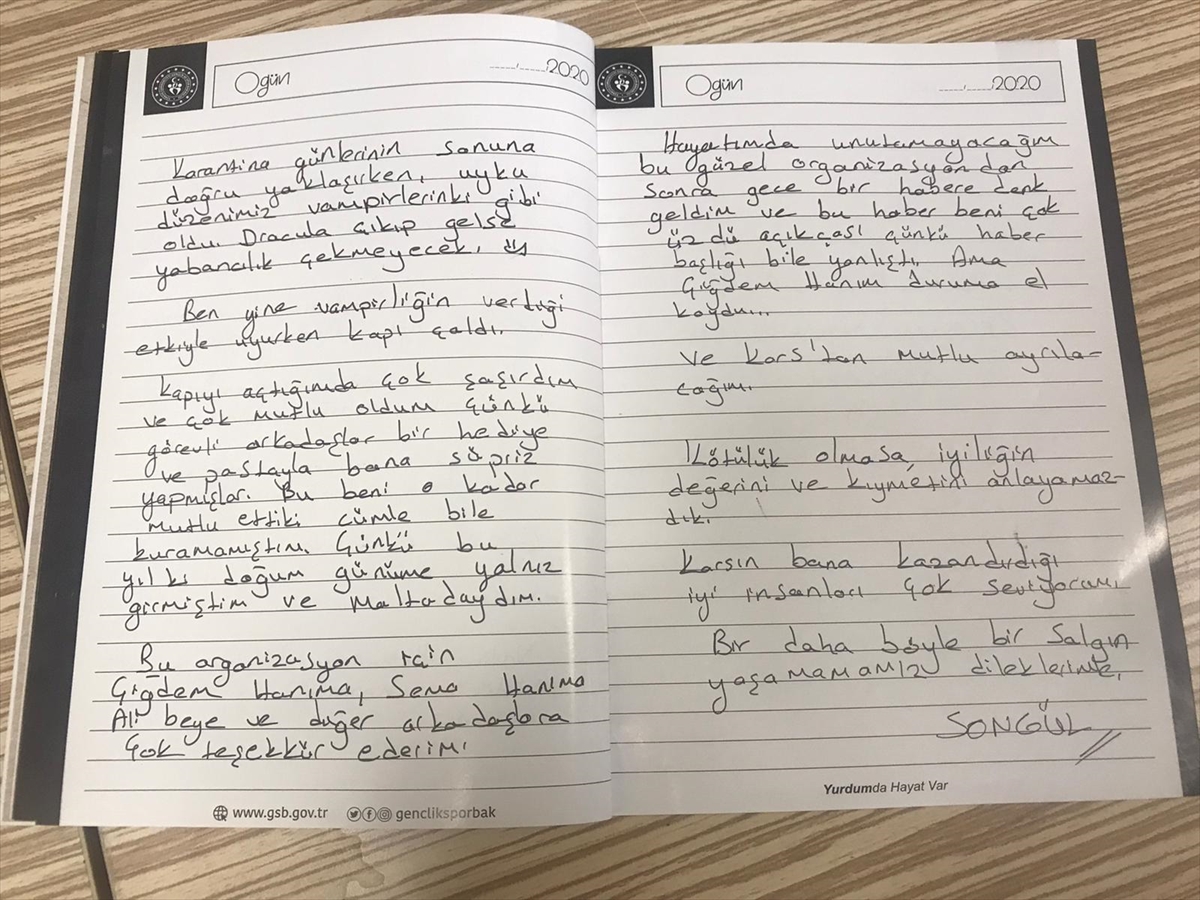 Ogün ...../...../2020
Karantina günlerinin sonuna
doğru yaklaşırken, uyku
düzenimiz vampirlerinki gibi
oldu. Dracula çıkıp gelse
yabancılık çekmeyecek.
Ben yine vampirliğin verdiği
etkiyle uyurken kapı çaldı.
Kapıyı açtığımda çok şaşırdım
ve çok mutlu oldum çünkü
görevli arkadaşlar bir hediye
ve pastayla bana süpriz
yapmışlar. Bu beni o kadar
mutlu ettiki cümle bile
kuramamıştım. Çünkü bu
yılki doğum günüme yalnız
girmiştim ve Maltadaydım.
Bu organizasyon için
Çiğdem Hanıma, Sema Hanıma
Ali beye ve diğer arkadaşlara
çok teşekkür ederim.
www.gsb.gov.tr gencliksporbak
Ogün ...../...../2020
Hayatımda unutamayacağım
bu güzel organizasyondan
sonra gece bir habere denk
geldim ve bu haber beni çok
üzdü açıkçası çünkü haber
başlığı bile yanlıştı. Ama
Çiğdem Hanım duruma el
koydu...
Ve Kars'tan mutlu ayrıla-
cağım.
Kötülük olmasa iyiliğin
değerini ve kıymetini anlayamaz-
dık.
Karsın bana kazandırdığı
iyi insanları çok seviyorum.
Bir daha böyle bir Salgın
yaşamamamız dileklerimle,
SONGÜL
Yurdumda Hayat Var